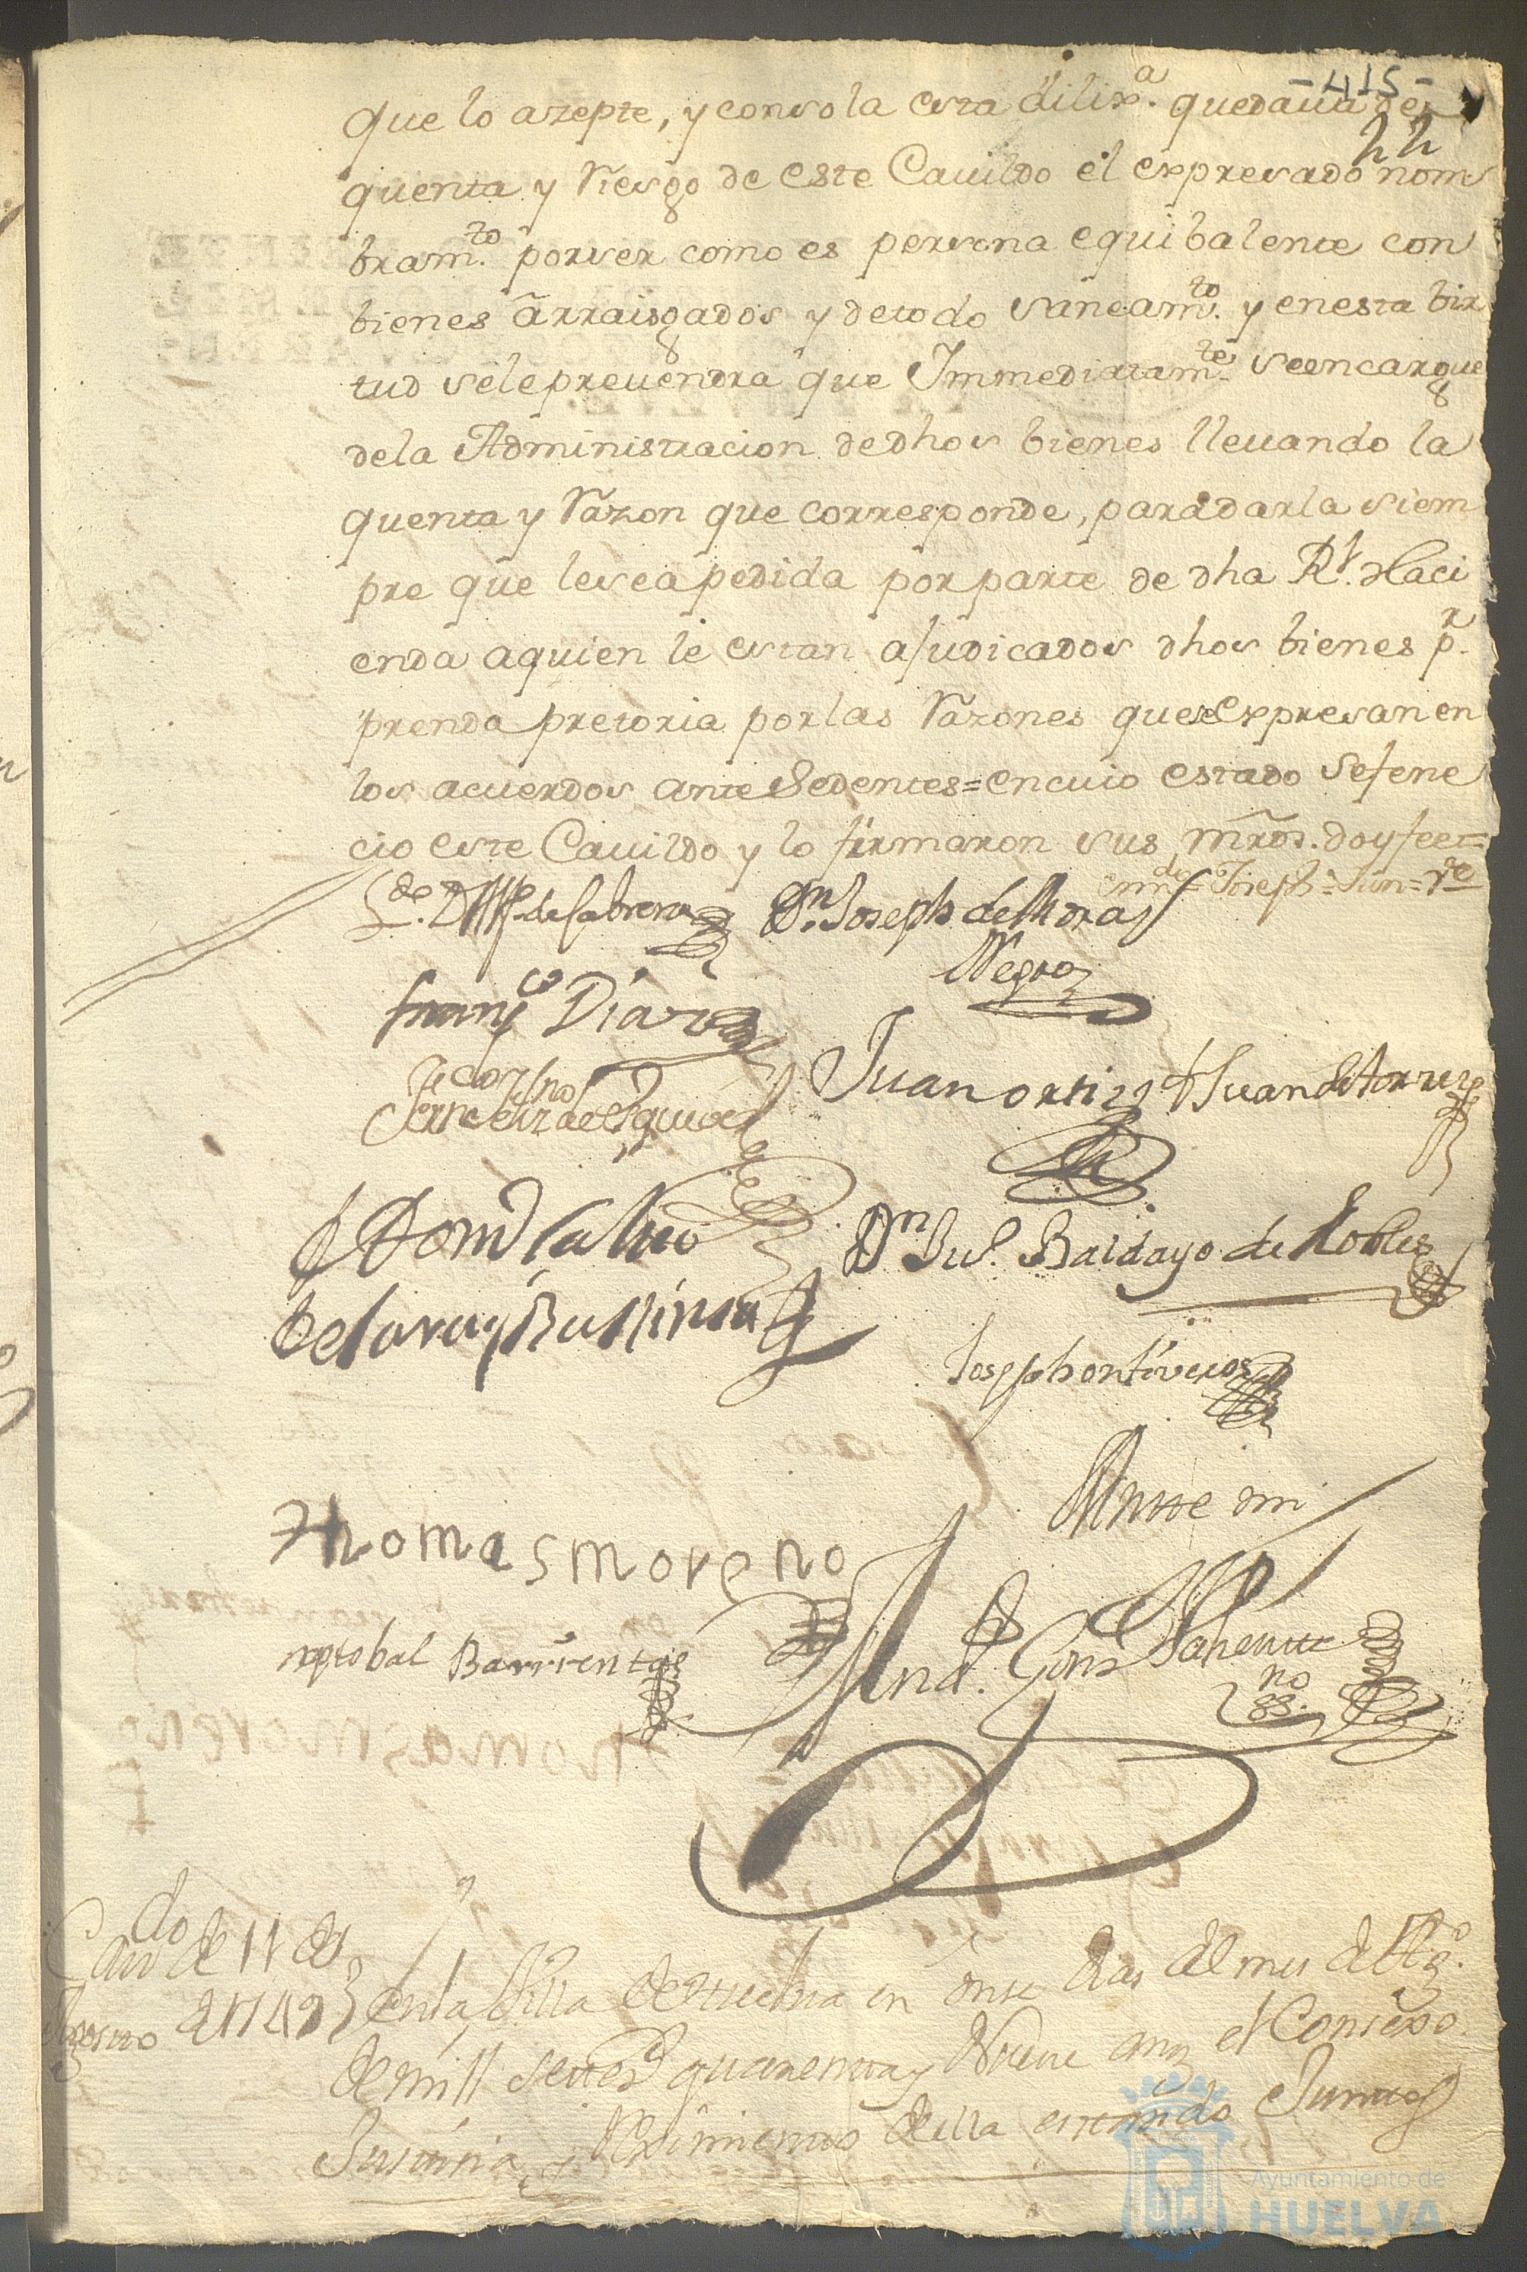 -415-
que lo azepte, y con sola esta dilixa. quedaua de
22
quenta y Riesgo de este Cauildo el expresado nom
bramto. por ser como es persona equibalente con
bienes arraisgados y de todo saneamto. y en esta bir
tud se le preuendrá que Immediatamte. se encargue
de la Administracion de dhos bienes lleuando la
quenta y Razon que corresponde, para darla siem
pre que le sea pedida por parte de dha Rl. Haci
enda a quien le estan ajudicados dhos bienes pr.
prenda pretoria por las Razones que se expresan en
los acuerdos antesedentes = en cuio estado se fene
cio este Cauildo y lo firmaron sus mrds. doy fee =
enmdo = Joseph =
de Cabrera
Dn. Joseph de Mora
Negro
Franco Diaz
Juan ortiz
Juan de torres
de Esquivel
Domo Calvo
de Lara y Bullones
Dn Jul. Baldayo de Robles
Joseph ontiveros
Thomas moreno
Antte mi
xptobal Barrientos
And. Gonz Vahemtte
no
Caudo de 11 de
Agosto de 1749
en la Villa de Huelva en onse dias del mes de Agto.
de mill settesos quarenta y Nueve años el Consexo
Justicia y Reximiento de ella estando Juntos
Ayuntamiento de
HUELVA